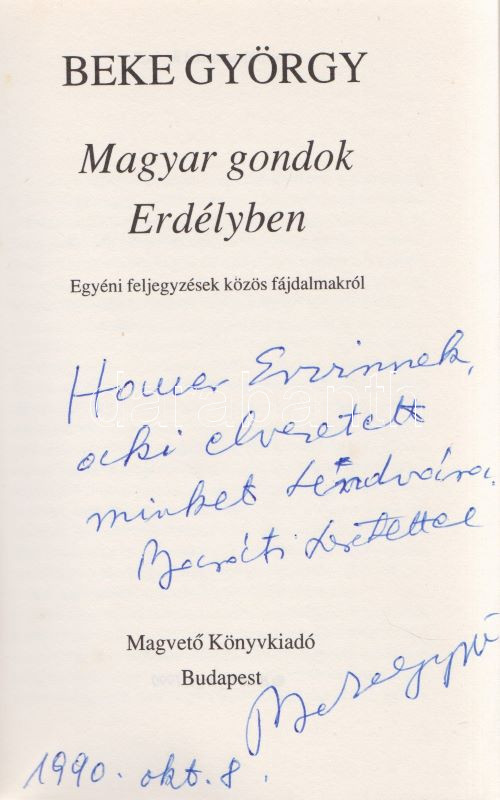 BEKE GYÖRGY
Magyar gondok
Erdélyben
Egyéni feljegyzések közös fájdalmakról
Homer Ervinnek,
aki elvezetett
minket Lendvára.
Baráti szeretettel
Magvető Könyvkiadó
Budapest
Beke György
1990. okt. 8.